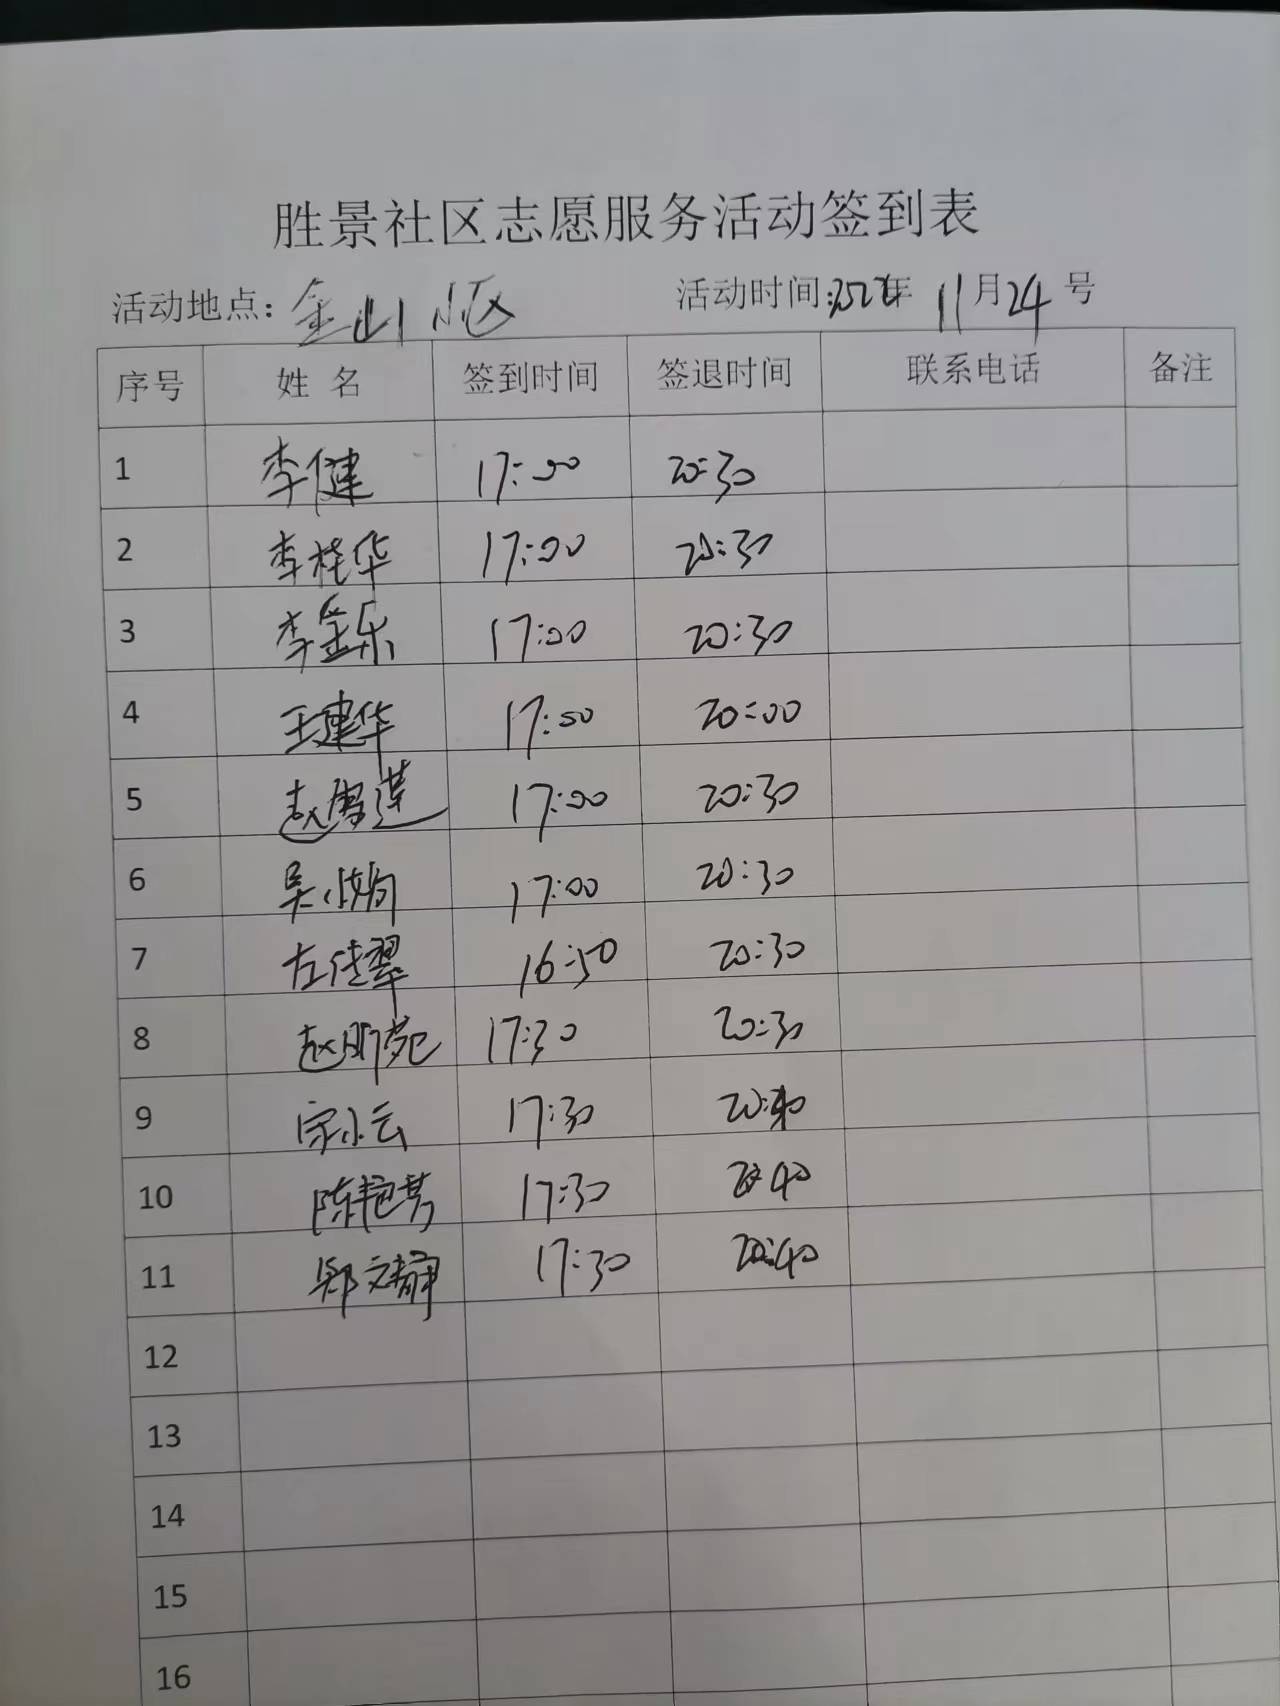 胜景社区志愿服务活动签到表
活动地点：金山小区 活动时间：2022年 11月24号
序号 姓名 签到时间 签退时间 联系电话 备注
1 李健 17:00 20:30
2 李桂华 17:00 20:30
3 李金乐 17:00 20:30
4 王建华 17:00 20:00
5 赵 莲 17:00 20:30
6 吴小 17:00 20:30
7 左佳翠 16:50 20:30
8 赵明苑 17:30 20:30
9 宗小云 17:30
10 陈艳芳 17:30 20:40
11 郑文静 17:30 20:40
12
13
14
15
16